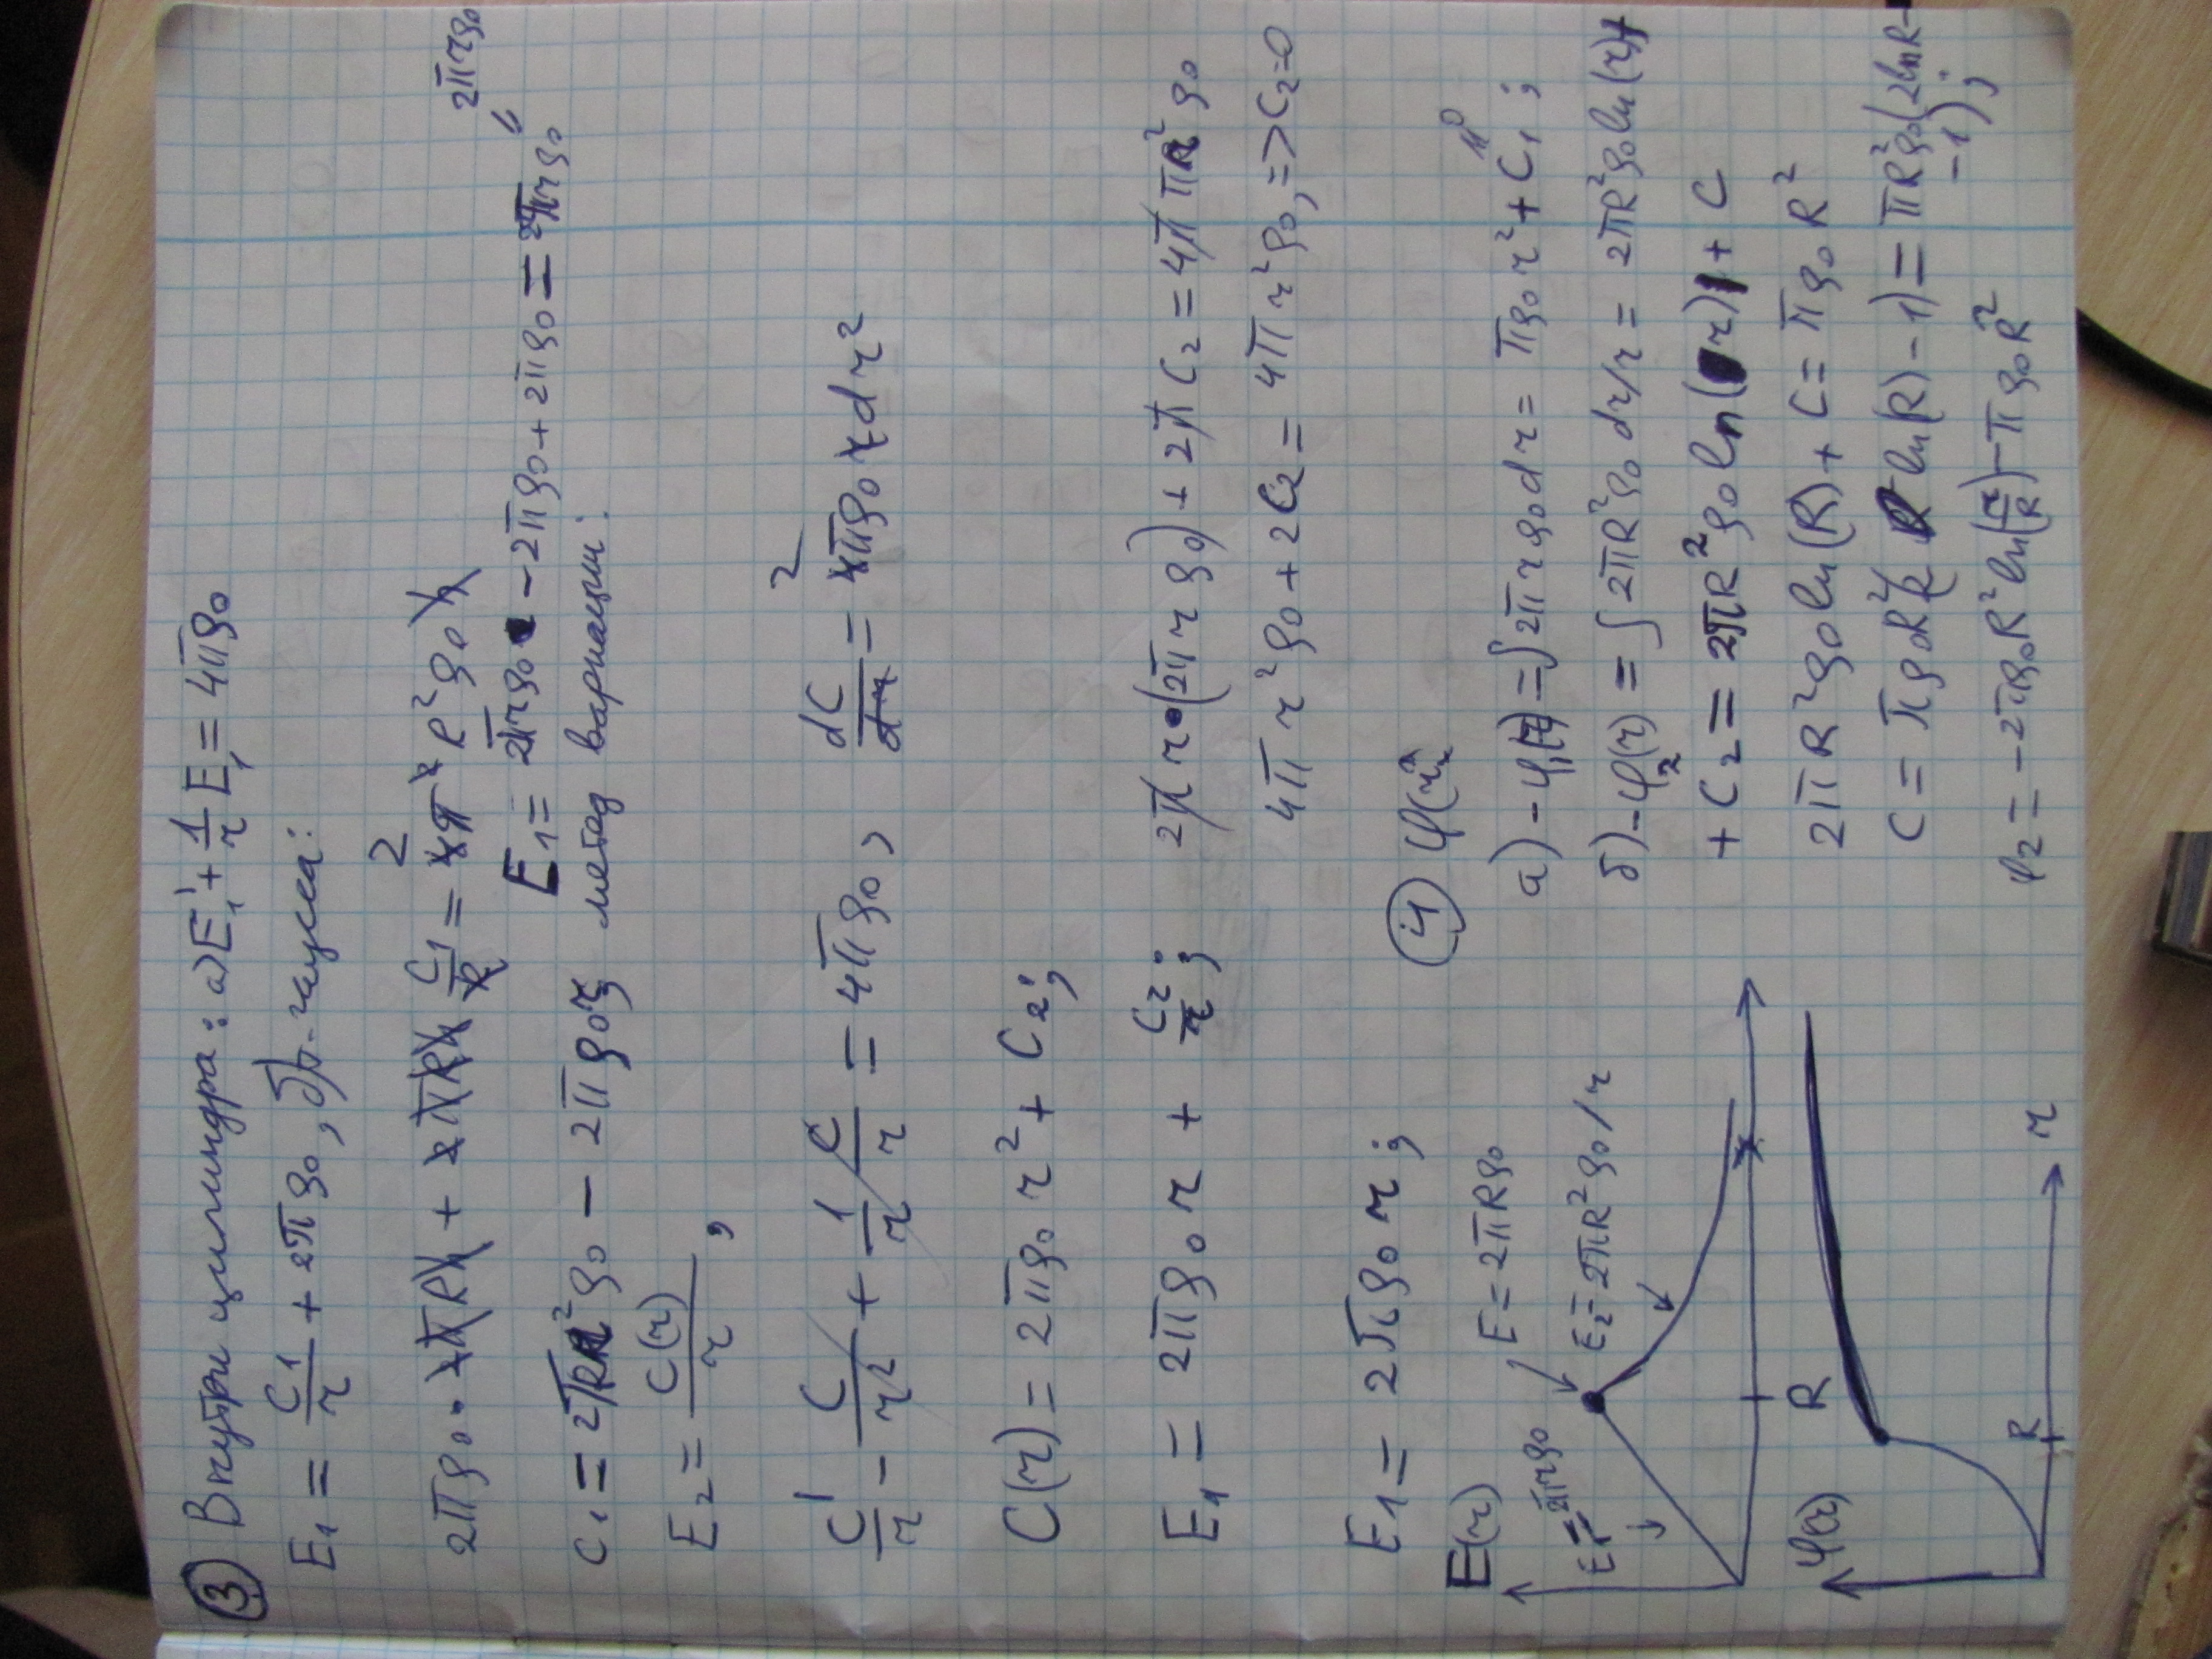 ③ Внутри цилиндра: а) E₁' + 1/r E₁ = 4πρ₀
E₁ = C₁/r + 2πρ₀, б) т. Гаусса:
2πρ₀ · 2πRh + 2πRh C₁/R = 4π² R² ρ₀ h
2
2πrρ₀
E₁ = 2πrρ₀ - 2πρ₀ + 2πρ₀ = 2πrρ₀
C₁ = 2πR²ρ₀ - 2πρ₀r; метод вариации:
E₂ = C(r)/r,
C'/r - C/r² + 1/r C/r = 4πρ₀, dC/dr = 4πρ₀ r dr²
2
C(r) = 2πρ₀ r² + C₂;
E₁ = 2πρ₀ r + C₂/r; 2π r · (2πrρ₀) + 2π C₂ = 4π πr² ρ₀
4π r² ρ₀ + 2C₂ = 4π r² ρ₀, => C₂ = 0
E₁ = 2πρ₀ r;
④ φ(r)
E(r)
E = 2πRρ₀
E₁ = 2πrρ₀
E₂ = 2πR²ρ₀/r
R
а) -φ₁(r) = ∫2πrρ₀dr = πρ₀r² + C₁;
0
б) -φ₂(r) = ∫2πR²ρ₀ dr/r = 2πR²ρ₀ ln(r) +
+ C₂ = 2πR²ρ₀ ln(r) + C
2πR²ρ₀ ln(R) + C = πρ₀R²
C = πρ₀R²(2 ln(R) - 1) = πR²ρ₀(2lnR -
- 1);
φ₂ = -2πρ₀R² ln(r/R) - πρ₀R²
φ(r)
R
r